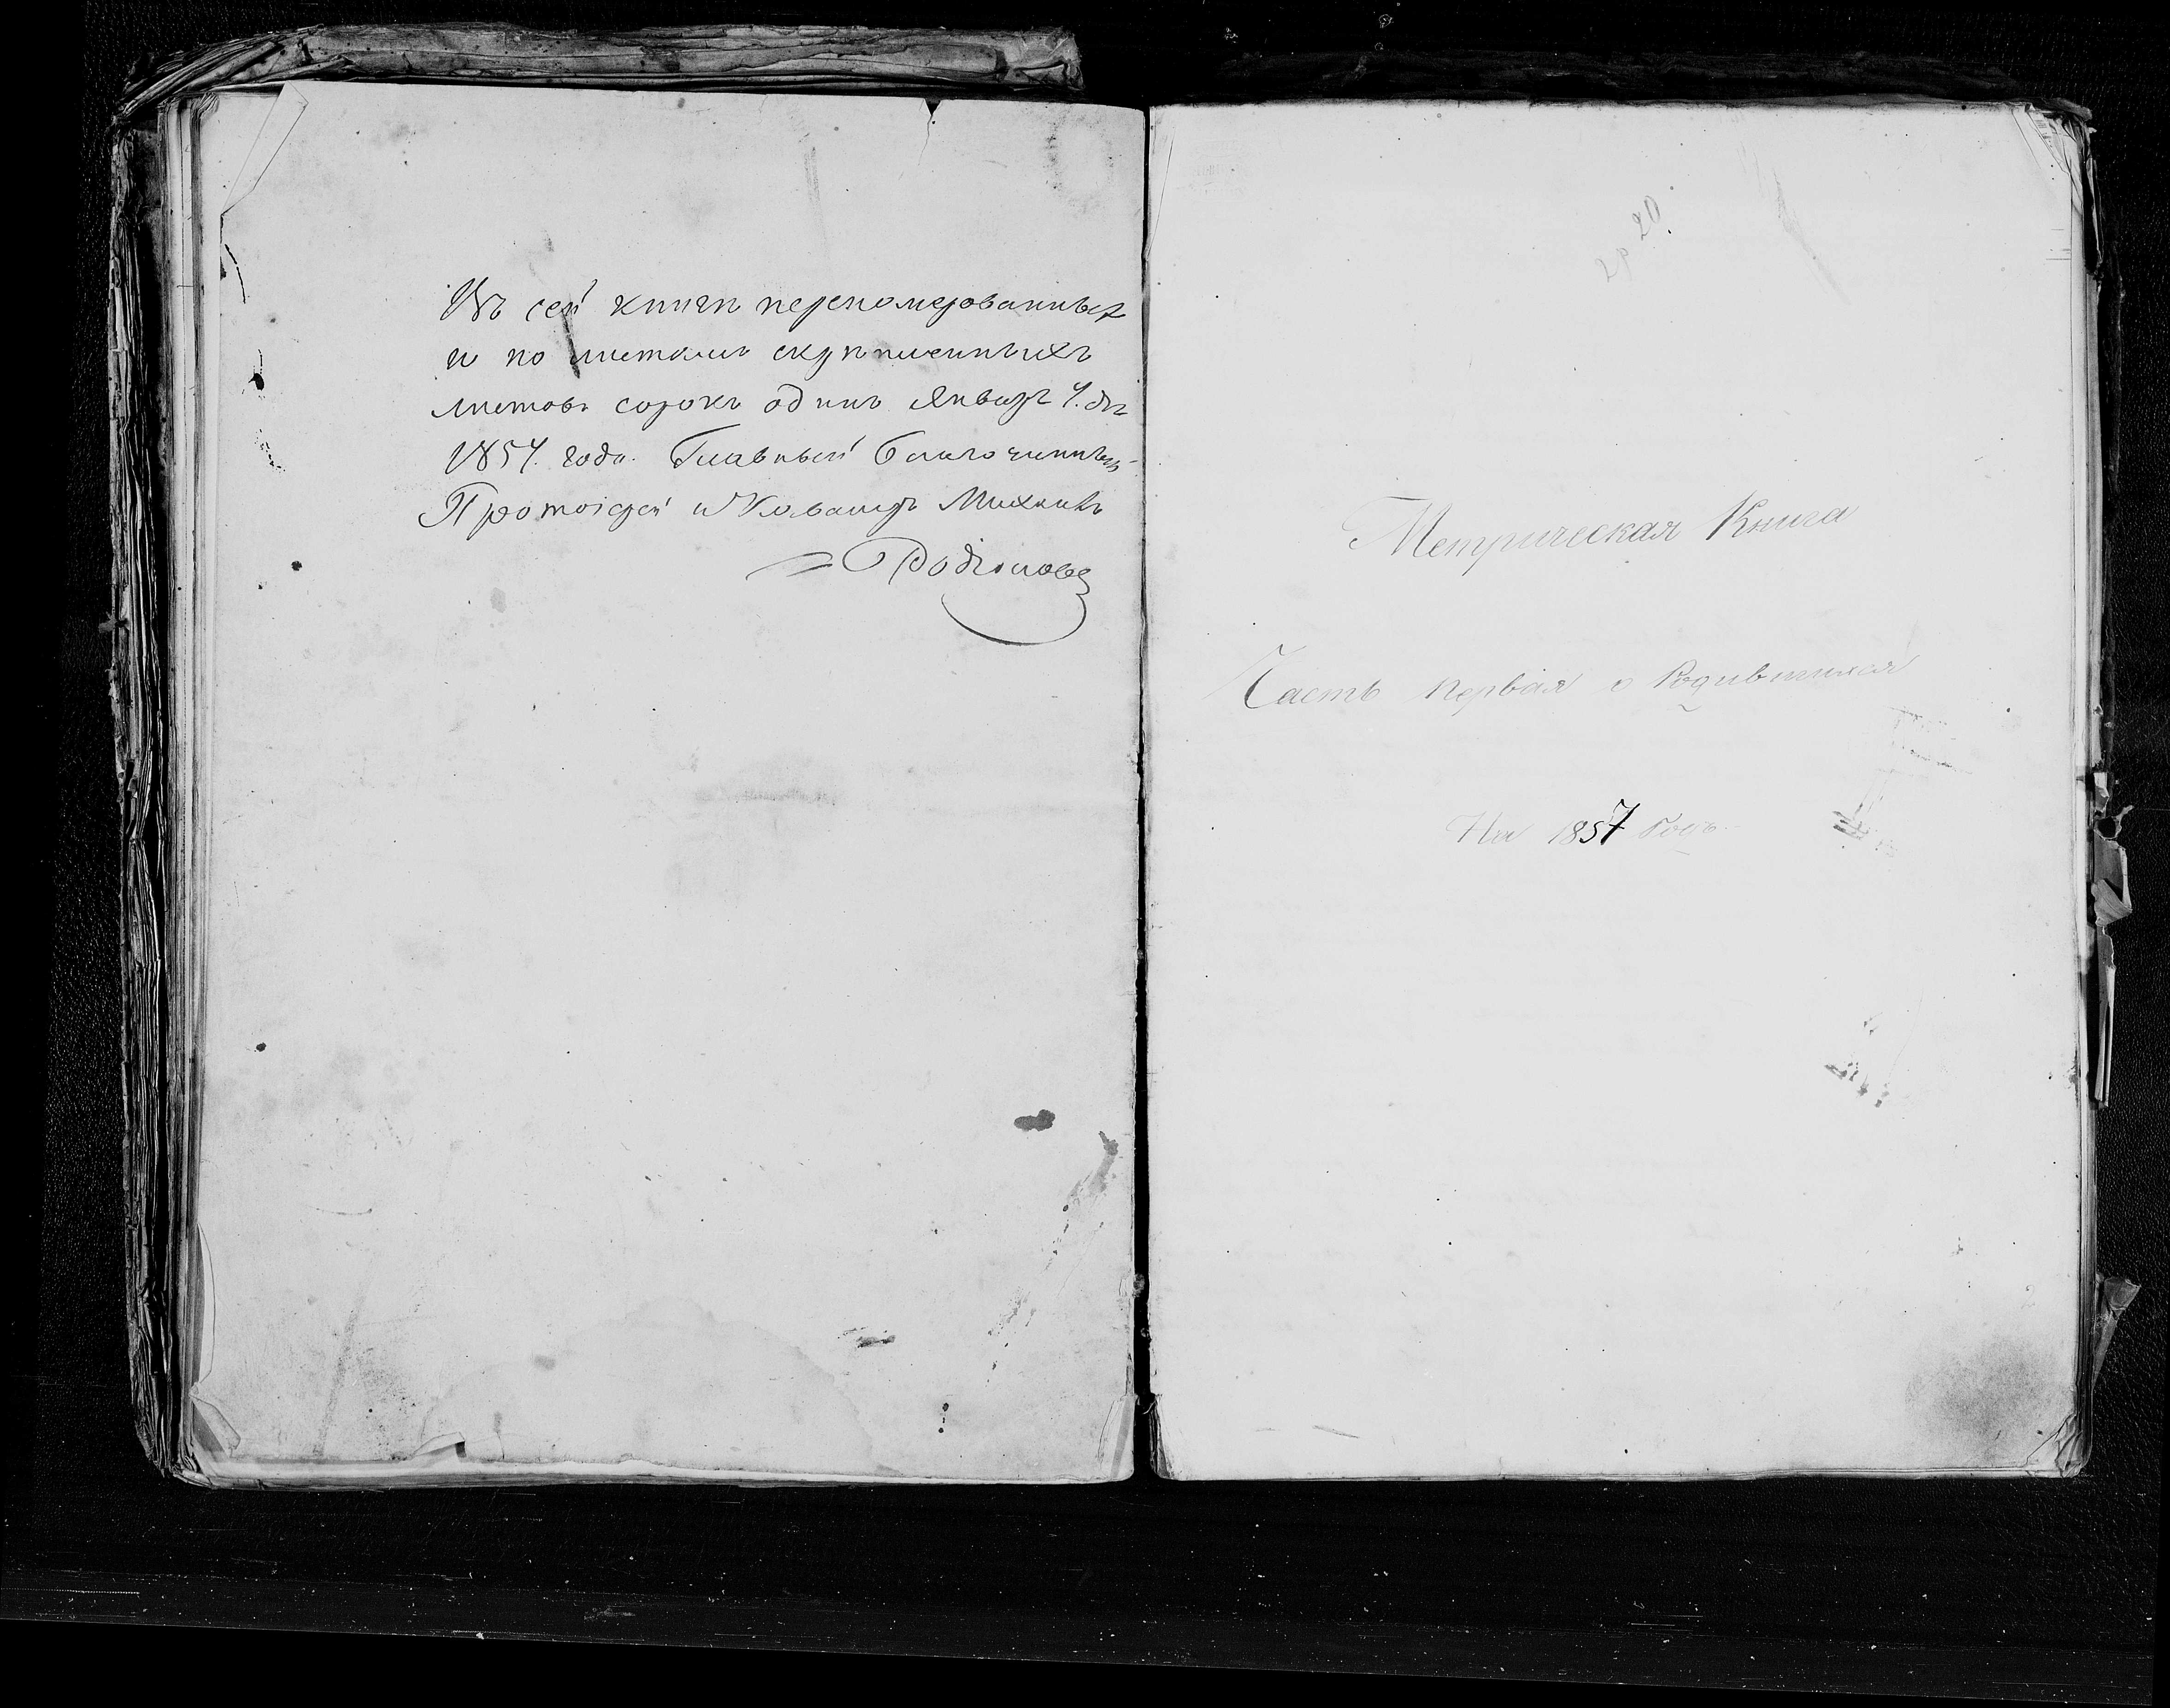 Въ сей книгѣ переномерованныхъ
и по листамъ скрѣпленныхъ
листовъ сорокъ одинъ Января 7. дня
1857. года. Главный Благочинный
Протоіерей и Кавалеръ Михаилъ
Родіоновъ
20
Метрическая Книга
Часть первая о Родившихся
На 1857 Годъ
2